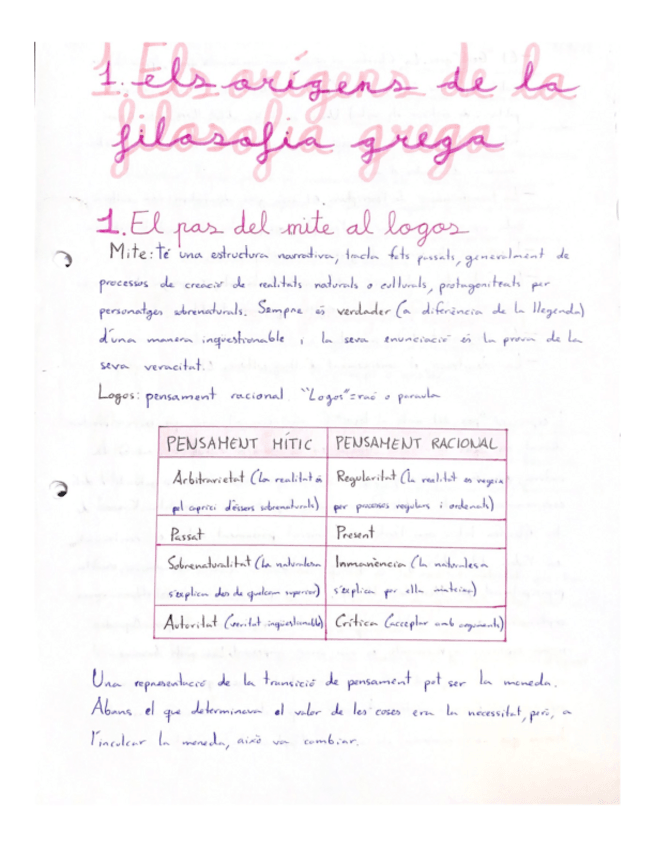 1. Els orígens de la
filosofia grega
1. El pas del mite al logos
Mite: té una estructura narrativa, tracta fets passats, generalment de
processos de creació de realitats naturals o culturals, protagonitzats per
personatges sobrenaturals. Sempre és verdader (a diferència de la llegenda)
d'una manera inqüestionable i la seva enunciació és la prova de la
seva veracitat.
Logos: pensament racional "Logos"=raó o paraula
PENSAMENT MÍTIC PENSAMENT RACIONAL
Arbitrarietat (la realitat és Regularitat (la realitat es
pel caprici d'éssers sobrenaturals) per processos regulars i ordenats)
Passat Present
Sobrenaturalitat (la naturalesa Inmanència (la naturalesa
s'explica des de quelcom superior) s'explica per ella mateixa)
Autoritat (veritat inqüestionable) Crítica (acceptar amb arguments)
Una representació de la transició de pensament pot ser la moneda.
Abans el que determinava el valor de les coses era la necessitat, però, a
l'inculcar la moneda, això va cambiar.